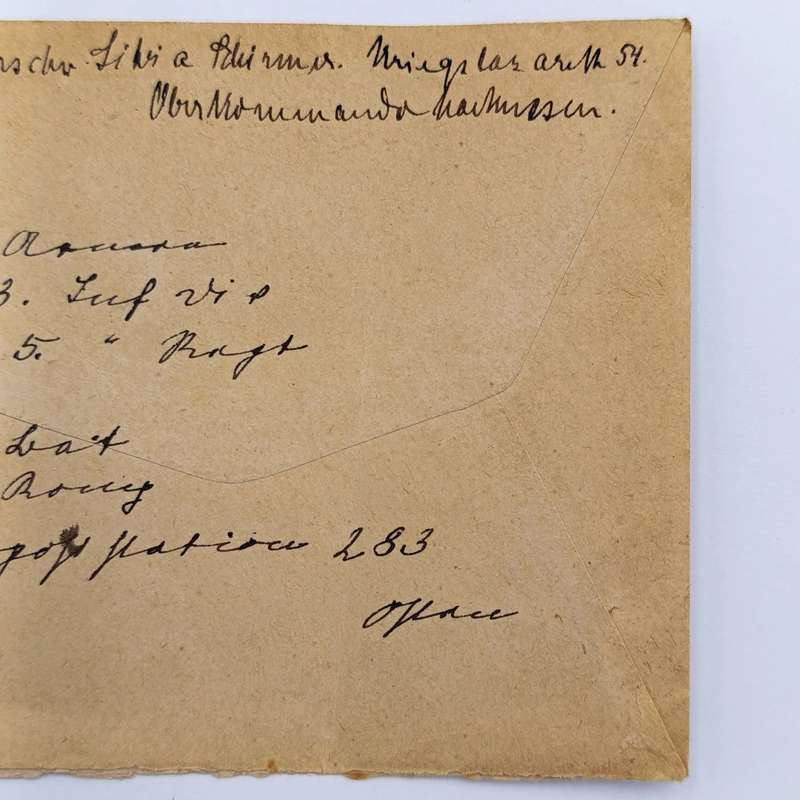 rschw. Silvia Schirmer. Kriegslazarett 54.
Oberkommando
3. Inf Div
5. " Regt
Bat
Komp
poststation 283
Osten